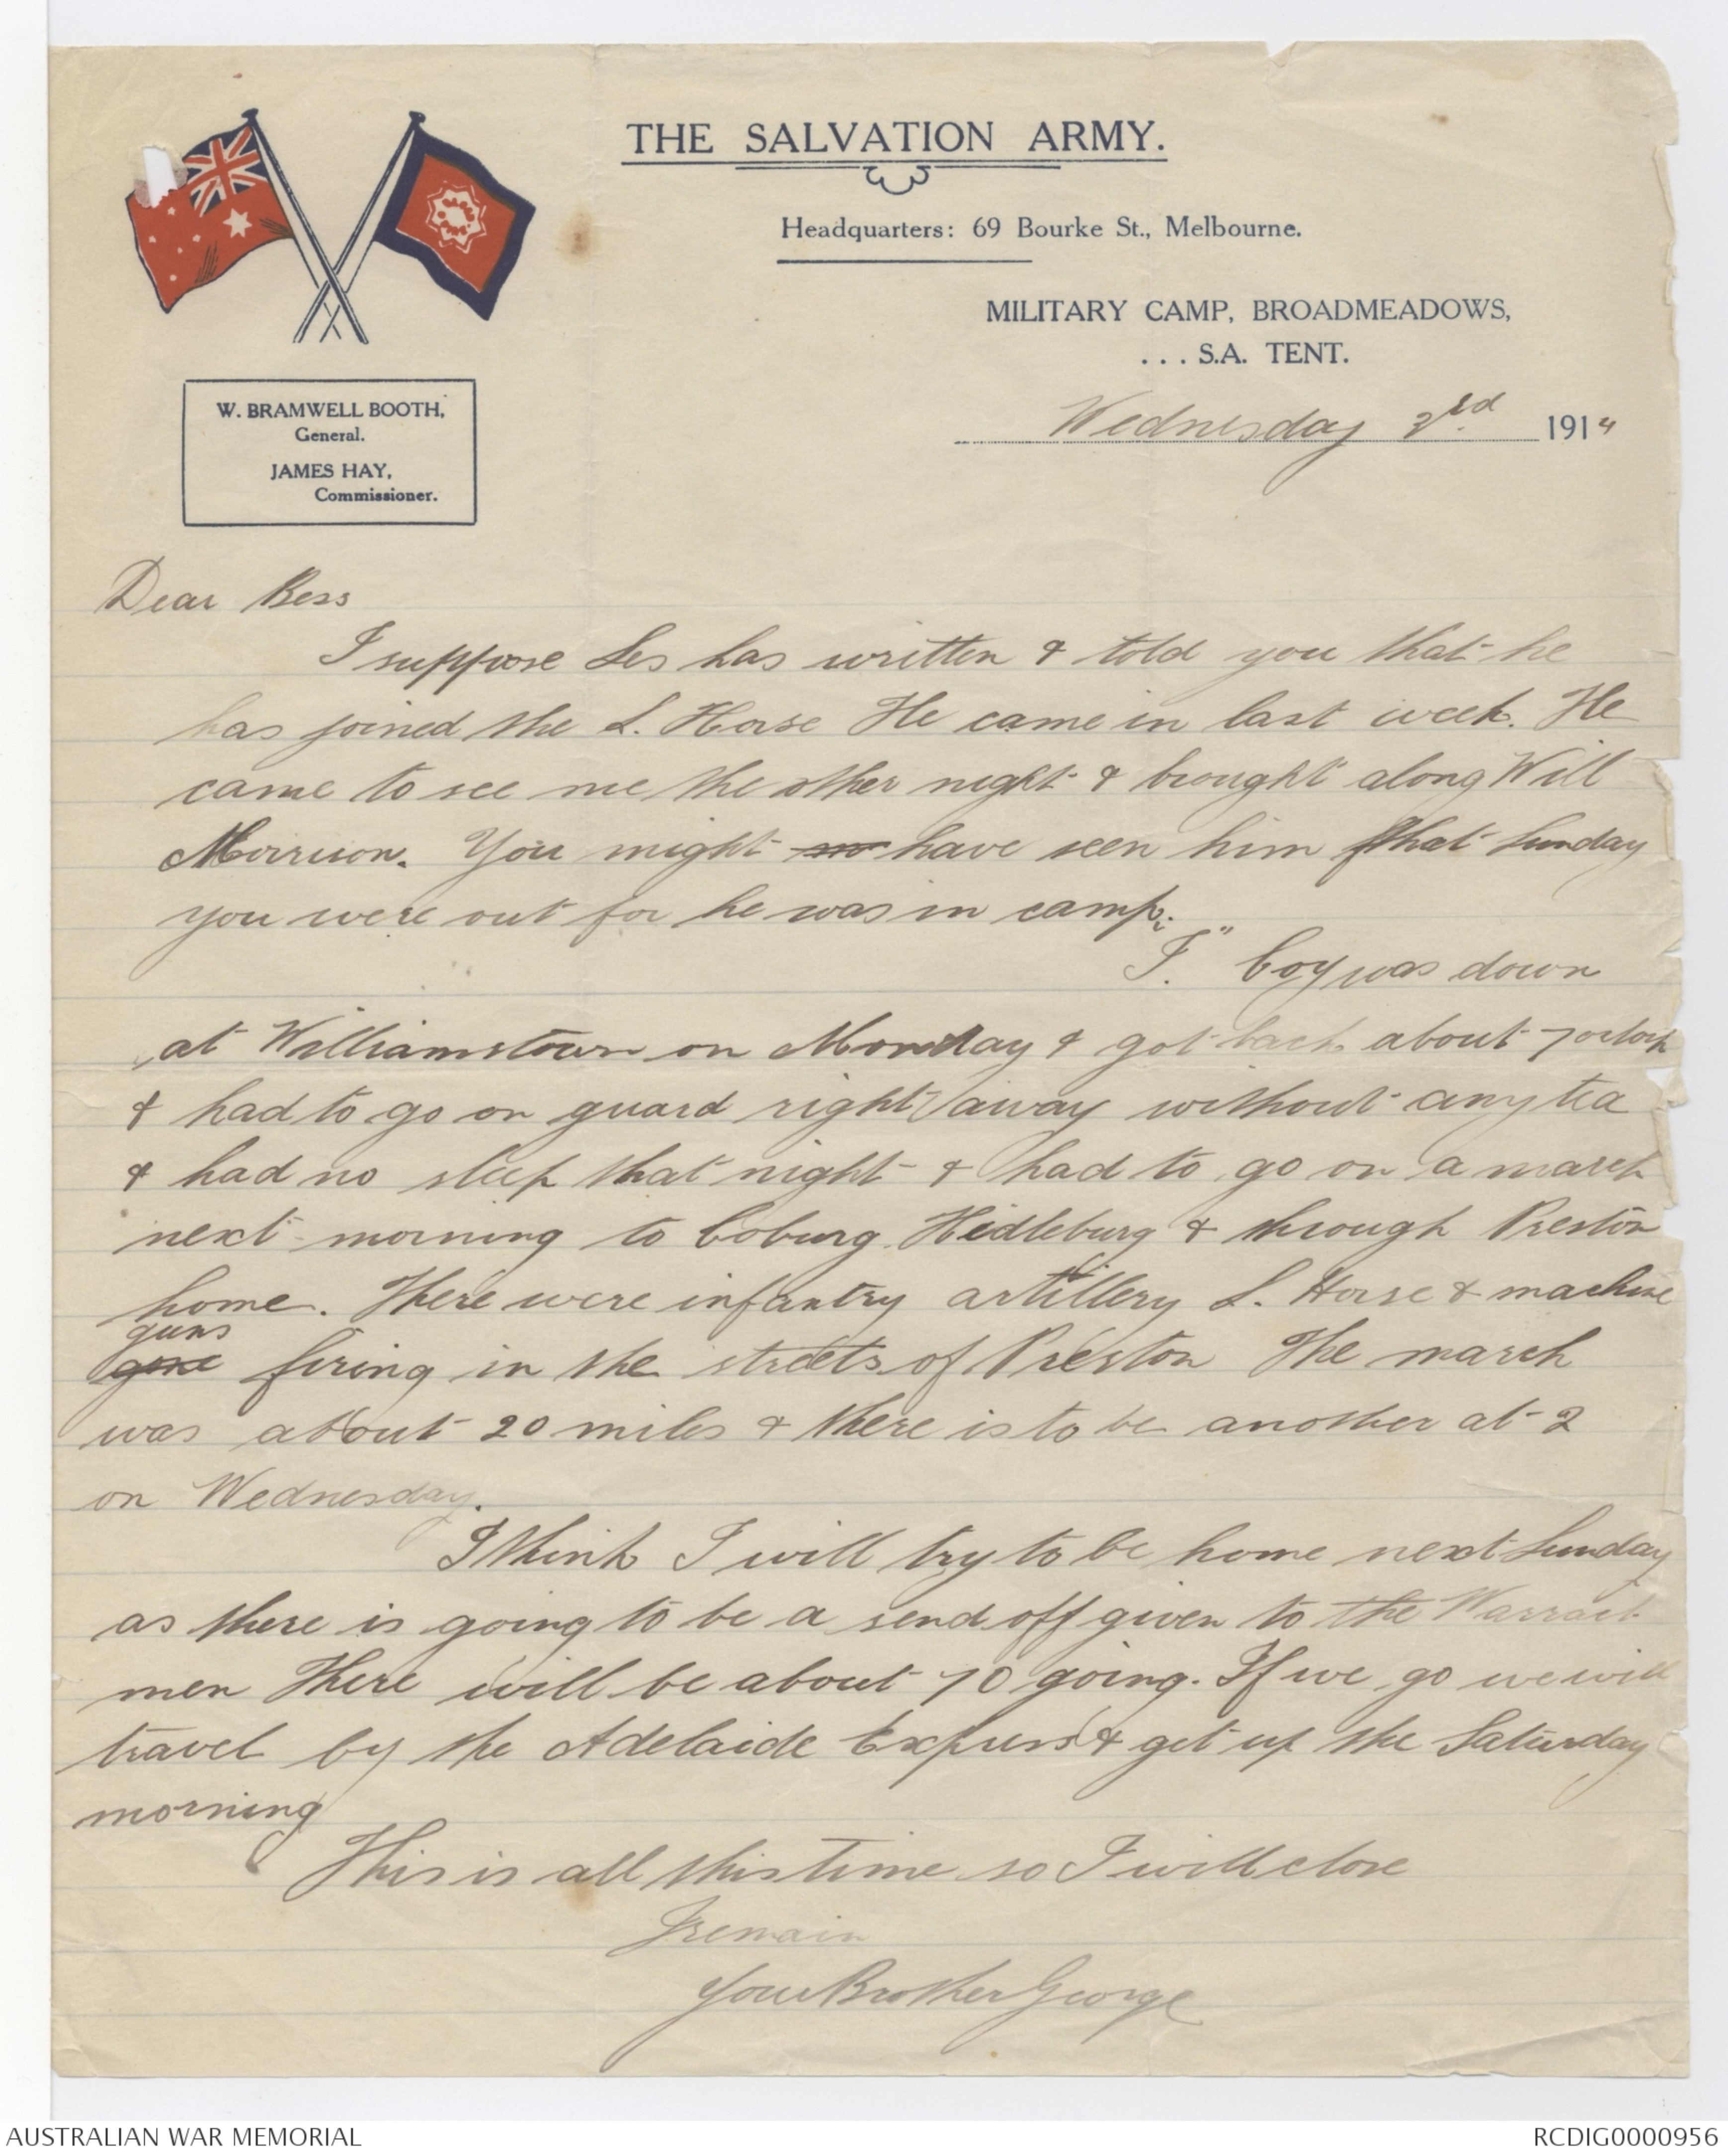 THE SALVATION ARMY.
Headquarters: 69 Bourke St., Melbourne.
MILITARY CAMP, BROADMEADOWS,
. . . S.A. TENT.
Wednesday 3rd 1914
W. BRAMWELL BOOTH,
General.
JAMES HAY,
Commissioner.
Dear Bess
I suppose Les has written & told you that he
has joined the L. Horse He came in last week. He
came to see me the other night & brought along Will
Morrison. You might have seen him that Sunday
you were out for he was in camp.
F." Coy was down
at Williamstown on Monday & got back about 7 oclock
& had to go on guard right away without any tea
& had no sleep that night & had to go on a march
next morning to Coburg Hidleburg & through Preston
home. There were infantry artillery L. Horse & machine
guns
firing in the streets of Preston The march
was about 20 miles & there is to be another at 2
on Wednesday.
I think I will try to be home next Sunday
as there is going to be a send off given to the
men There will be about 70 going. If we go we will
travel by the Adelaide Express & get up the Saturday
morning
This is all this time so I will close
I remain
Your Brother George
AUSTRALIAN WAR MEMORIAL
RCDIG0000956